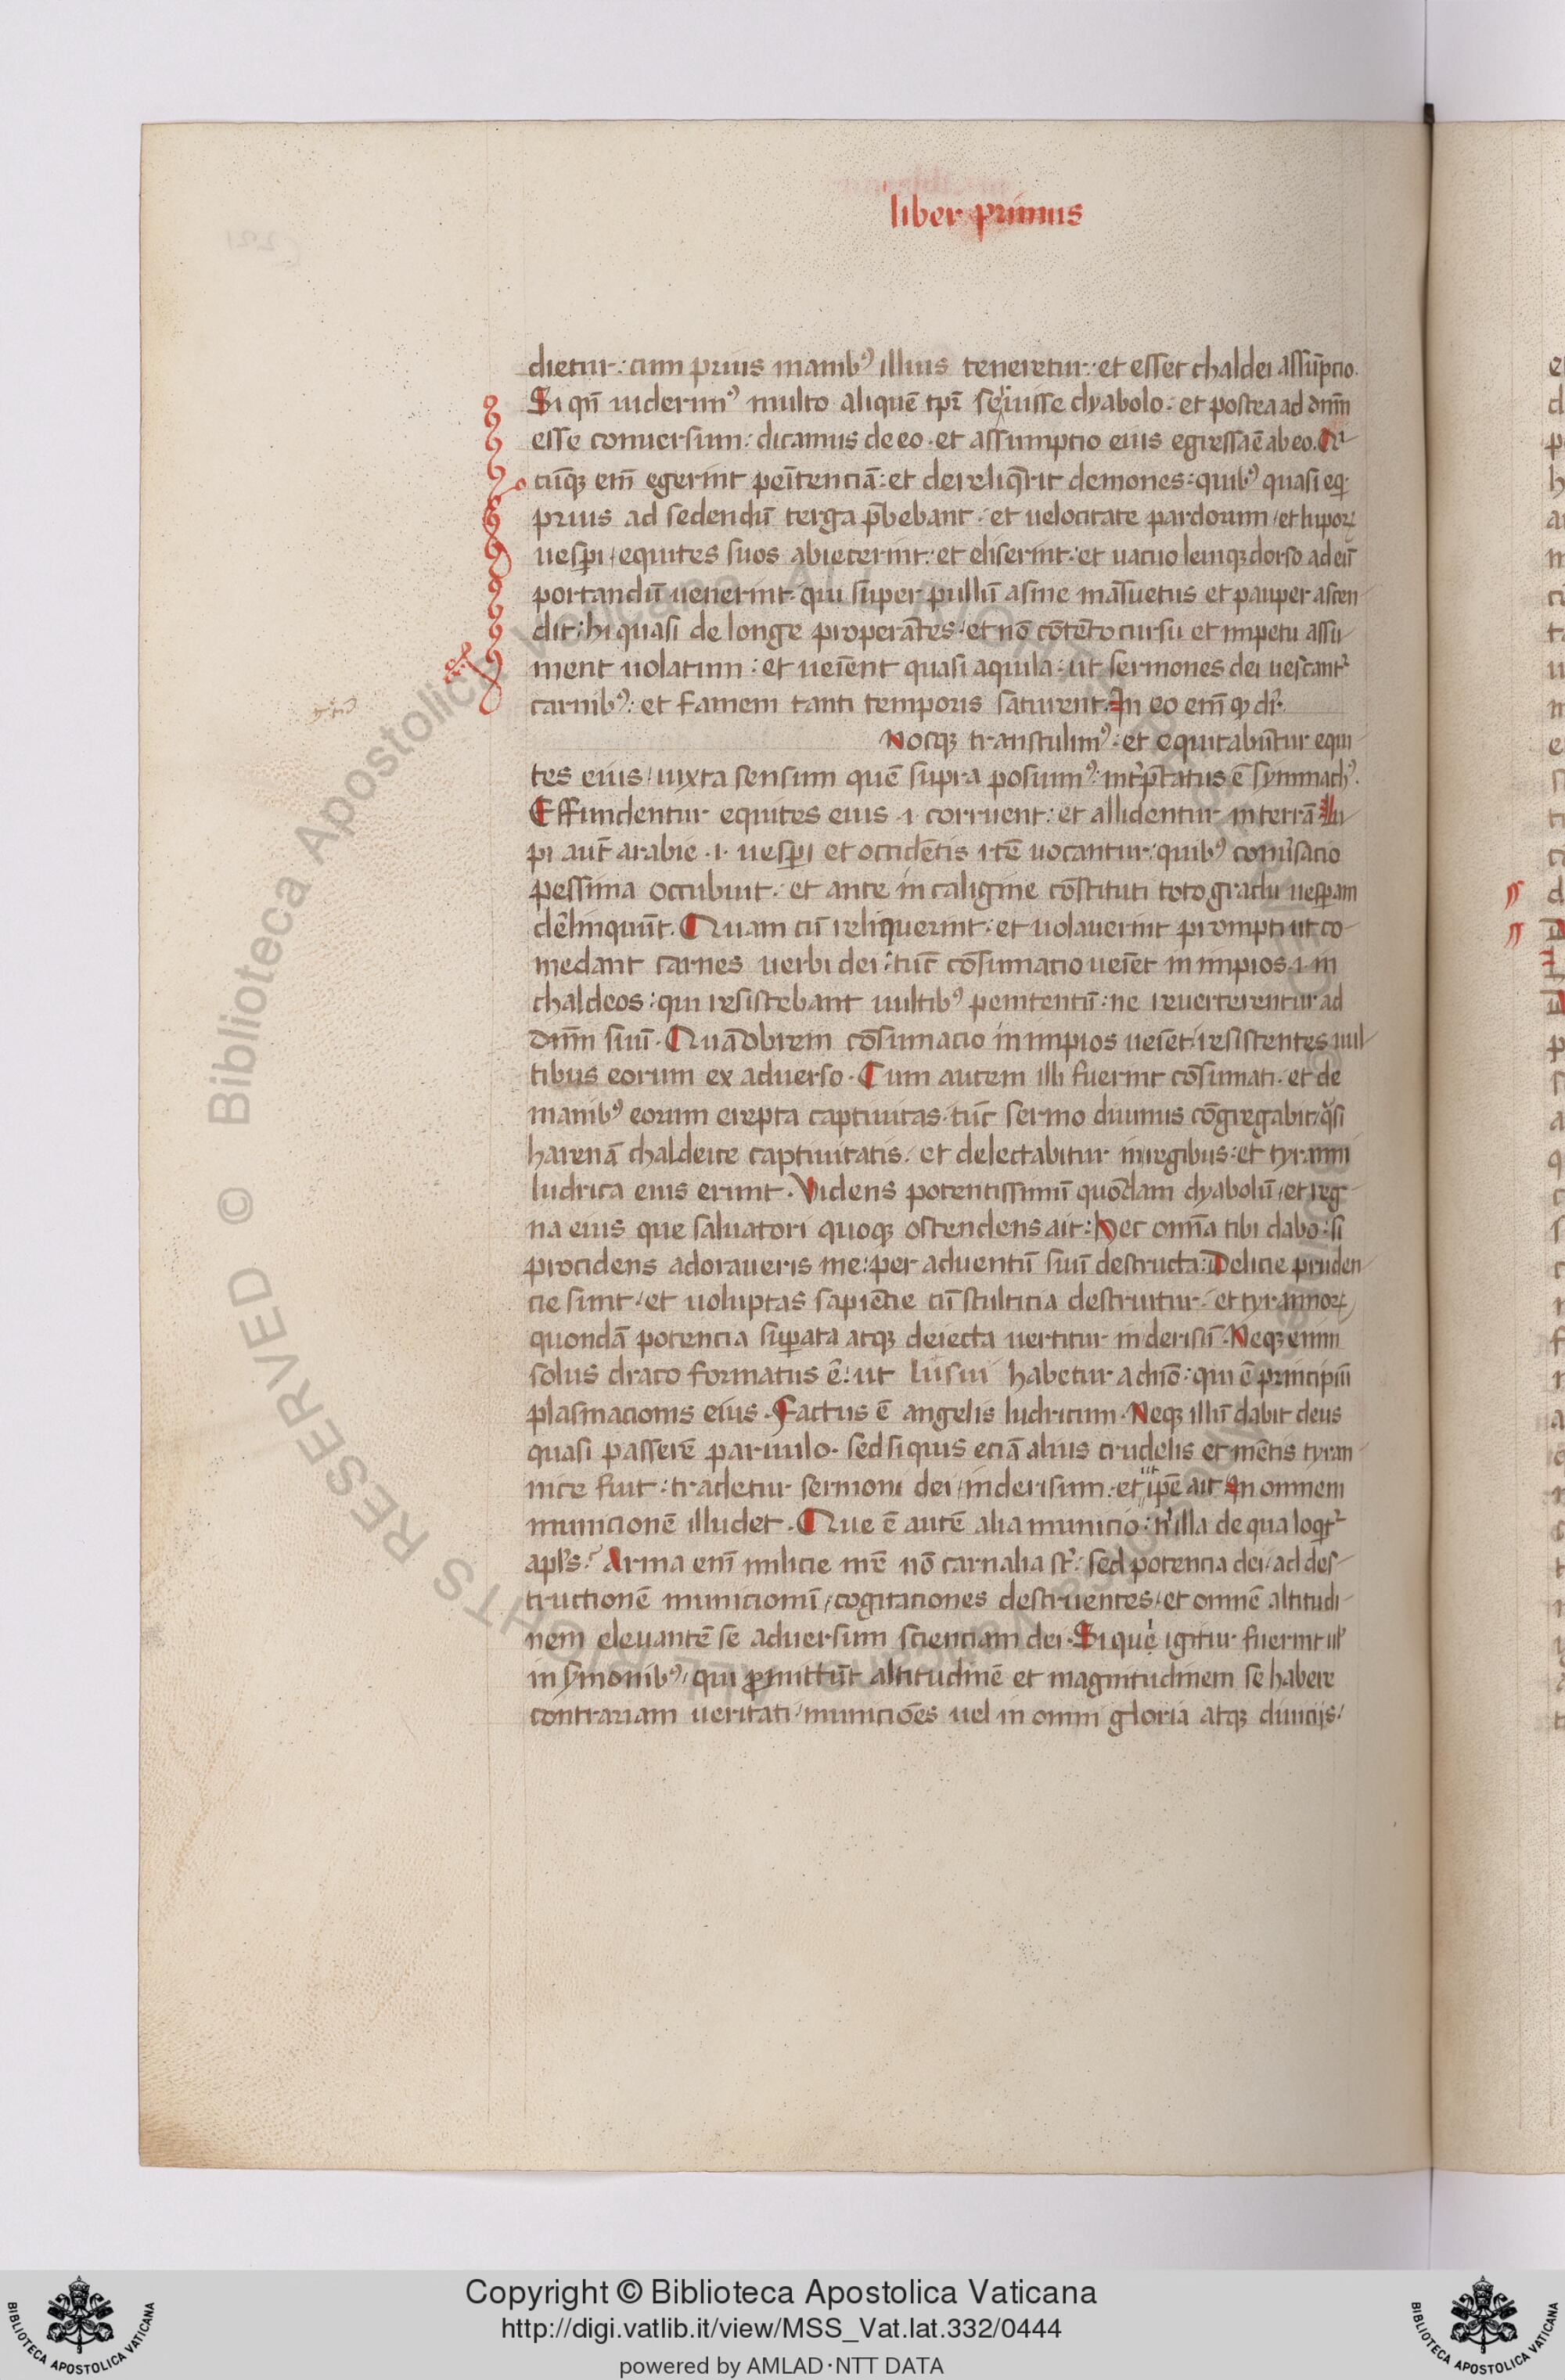 liber primus
dietur: cum prius manib⁹ illius teneretur: et esset chaldei assūptio.
Si qn̄ uiderim⁹ multo aliquē tpr̄ seruisse dyabolo: et postea ad dn̄m
esse conuersum: dicamus de eo. et assumptio eius egressa ē ab eo. Qi
cūq; em̄ egerint peītenciā: et dereliq̄rīt demones: quib⁹ quasi eq̇
prius ad sedendū terga p̄bebant. et uelocitate pardorum / et lupoꝝ
uesꝑi / equites suos abiecerint: et eliserint: et uacuo leniq; dorso ad eū
portandū uenerint. qui super pullū asine māsuetus et pauper ascen
dit: hi quasi de longe properātes. et nō cōtēto cursu et impetu assu
ment uolatum: et ueīent quasi aquila: ut sermones dei uescant᷑
carnib⁹: et famem tanti temporis saturent. In eo em̄ qđ dr̄.
Nosq; transtulim⁹: et equitabūtur equi
tes eius / iuxta sensum quē supra posuim⁹: int͛p̄tatus ē symmach⁹.
Effundentur equites eius .i. corruent: et allidentur in terrā. Lu
pi aut̄ arabie .i. uesꝑi et occidētis .i. tē uocantur: quib⁹ conu͛sacio
pessima occubuit. et ante in caligine cōstituti toto gradu uesꝑam
delīnquūt. Quam cū reliquerint: et uolauerint prompti ut co
medant carnes uerbi dei: tūc cōsumacio ueīet in impios .i. in
chaldeos: qui resistebant uultib⁹ penitentū: ne reuerterentur ad
dn̄m suū. Quāobrem cōsumacio in impios ueīet: resistentes uul
tibus eorum ex aduerso. Cum autem illi fuerint cōsumati. et de
manib⁹ eorum erepta captiuitas. tūc sermo diuinus cōgregabit / q̄si
harenā chaldeite captiuitatis. et delectabitur in regibus: et tyranni
ludrica eius erunt. Videns potentissimū quōdam dyabolū / et reg
na eius que saluatori quoq; ostendens ait: Hec om̄ia tibi dabo: si
procidens adoraueris me: per aduentū suū destructa: Delicie pruden
cie sunt. et uoluptas sapiētie cū stulticia destruitur. et tyrannoꝝ
quondā potencia suꝑata atq; deiecta uertitur in derisū. Neq; enim
solus draco formatus ē: ut lusui habetur a chr̄o: qui ē principiū
plasmacionis eius. Factus ē angelis ludricum. Neq; illū dabit deus
quasi passerē paruulo. sed si quis eciā alius crudelis et mētis tyran
nice fuit: tradetur sermoni dei / in derisum: et ut ip̄e ait In omnem
municionē illudet. Que ē autē alia municio: n̄ illa de qua loqt᷑
apl's. Arma enī milicie nr̄e nō carnalia sт᷑: sed potencia dei / ad des
tructionē municionū / cogitaciones destruentes / et omnē altitudi
nem eleuantē se aduersum scienciam dei. Si que igitur fuerint ul'
in s͛monib⁹ / qui ꝓmittūt altitudinē et magnitudinem se habere
contrariam ueritati / municiōes uel in omni gloria atq; diuicijs /